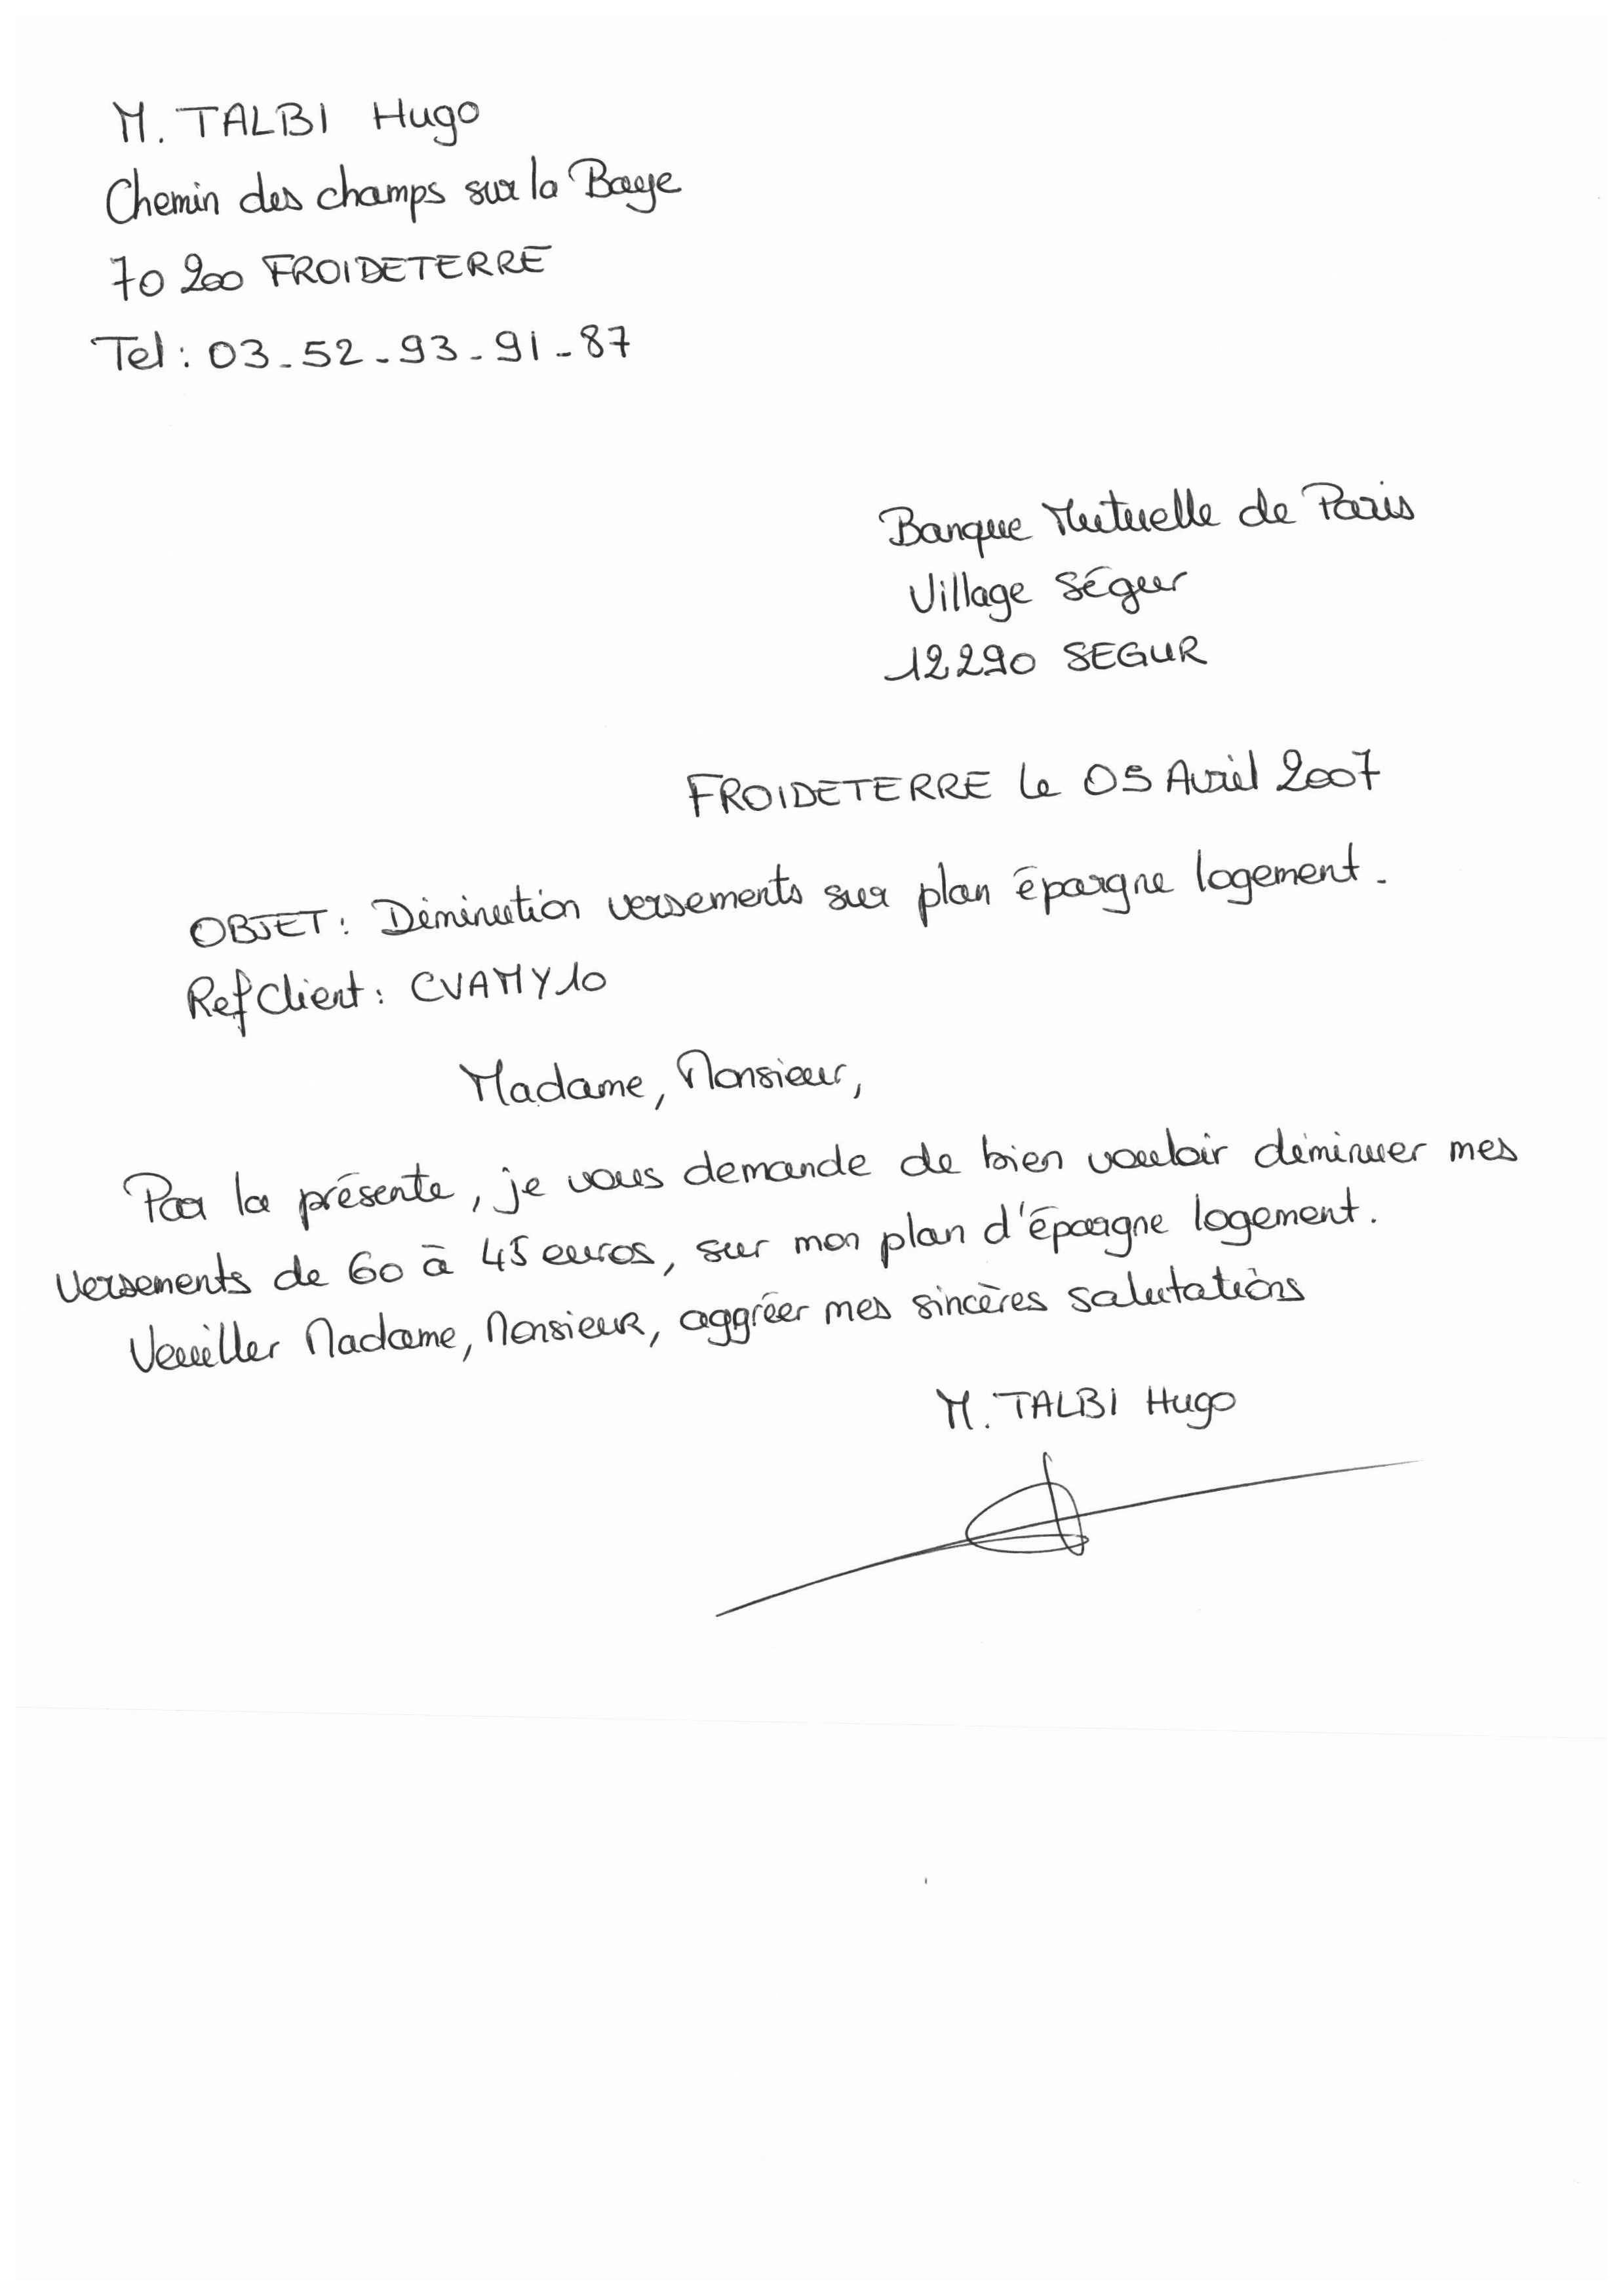 M. TALBI Hugo
Chemin des champs sur la Baye
70 200 FROIDETERRE
Tel : 03_52_93_91_87
Banque Mutuelle de Paris
Village Ségur
12290 SEGUR
FROIDETERRE le 05 Avril 2007
OBJET : Diminution versements sur plan épargne logement.
Ref Client : CVAMY10
Madame, Monsieur,
Par la présente, je vous demande de bien vouloir diminuer mes
versements de 60 à 45 euros, sur mon plan d'épargne logement.
Veuiller Madame, Monsieur, aggréer mes sincères salutations
M. TALBI Hugo